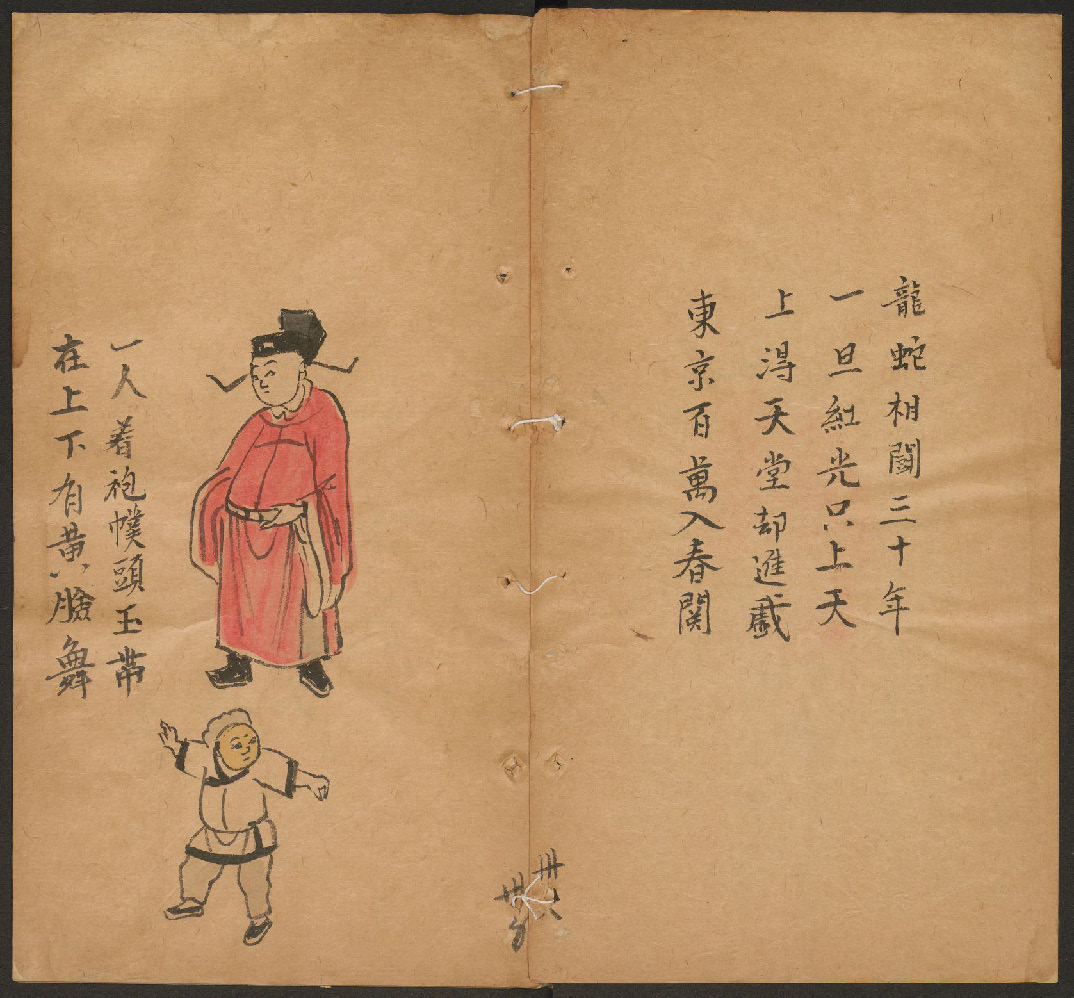 龍蛇相鬪三十年
一旦紅光只上天
上淂天堂却進戲
東京百萬入春関
卅六
卅
一人着袍幞頭玉帶
在上下有黄小臉舞